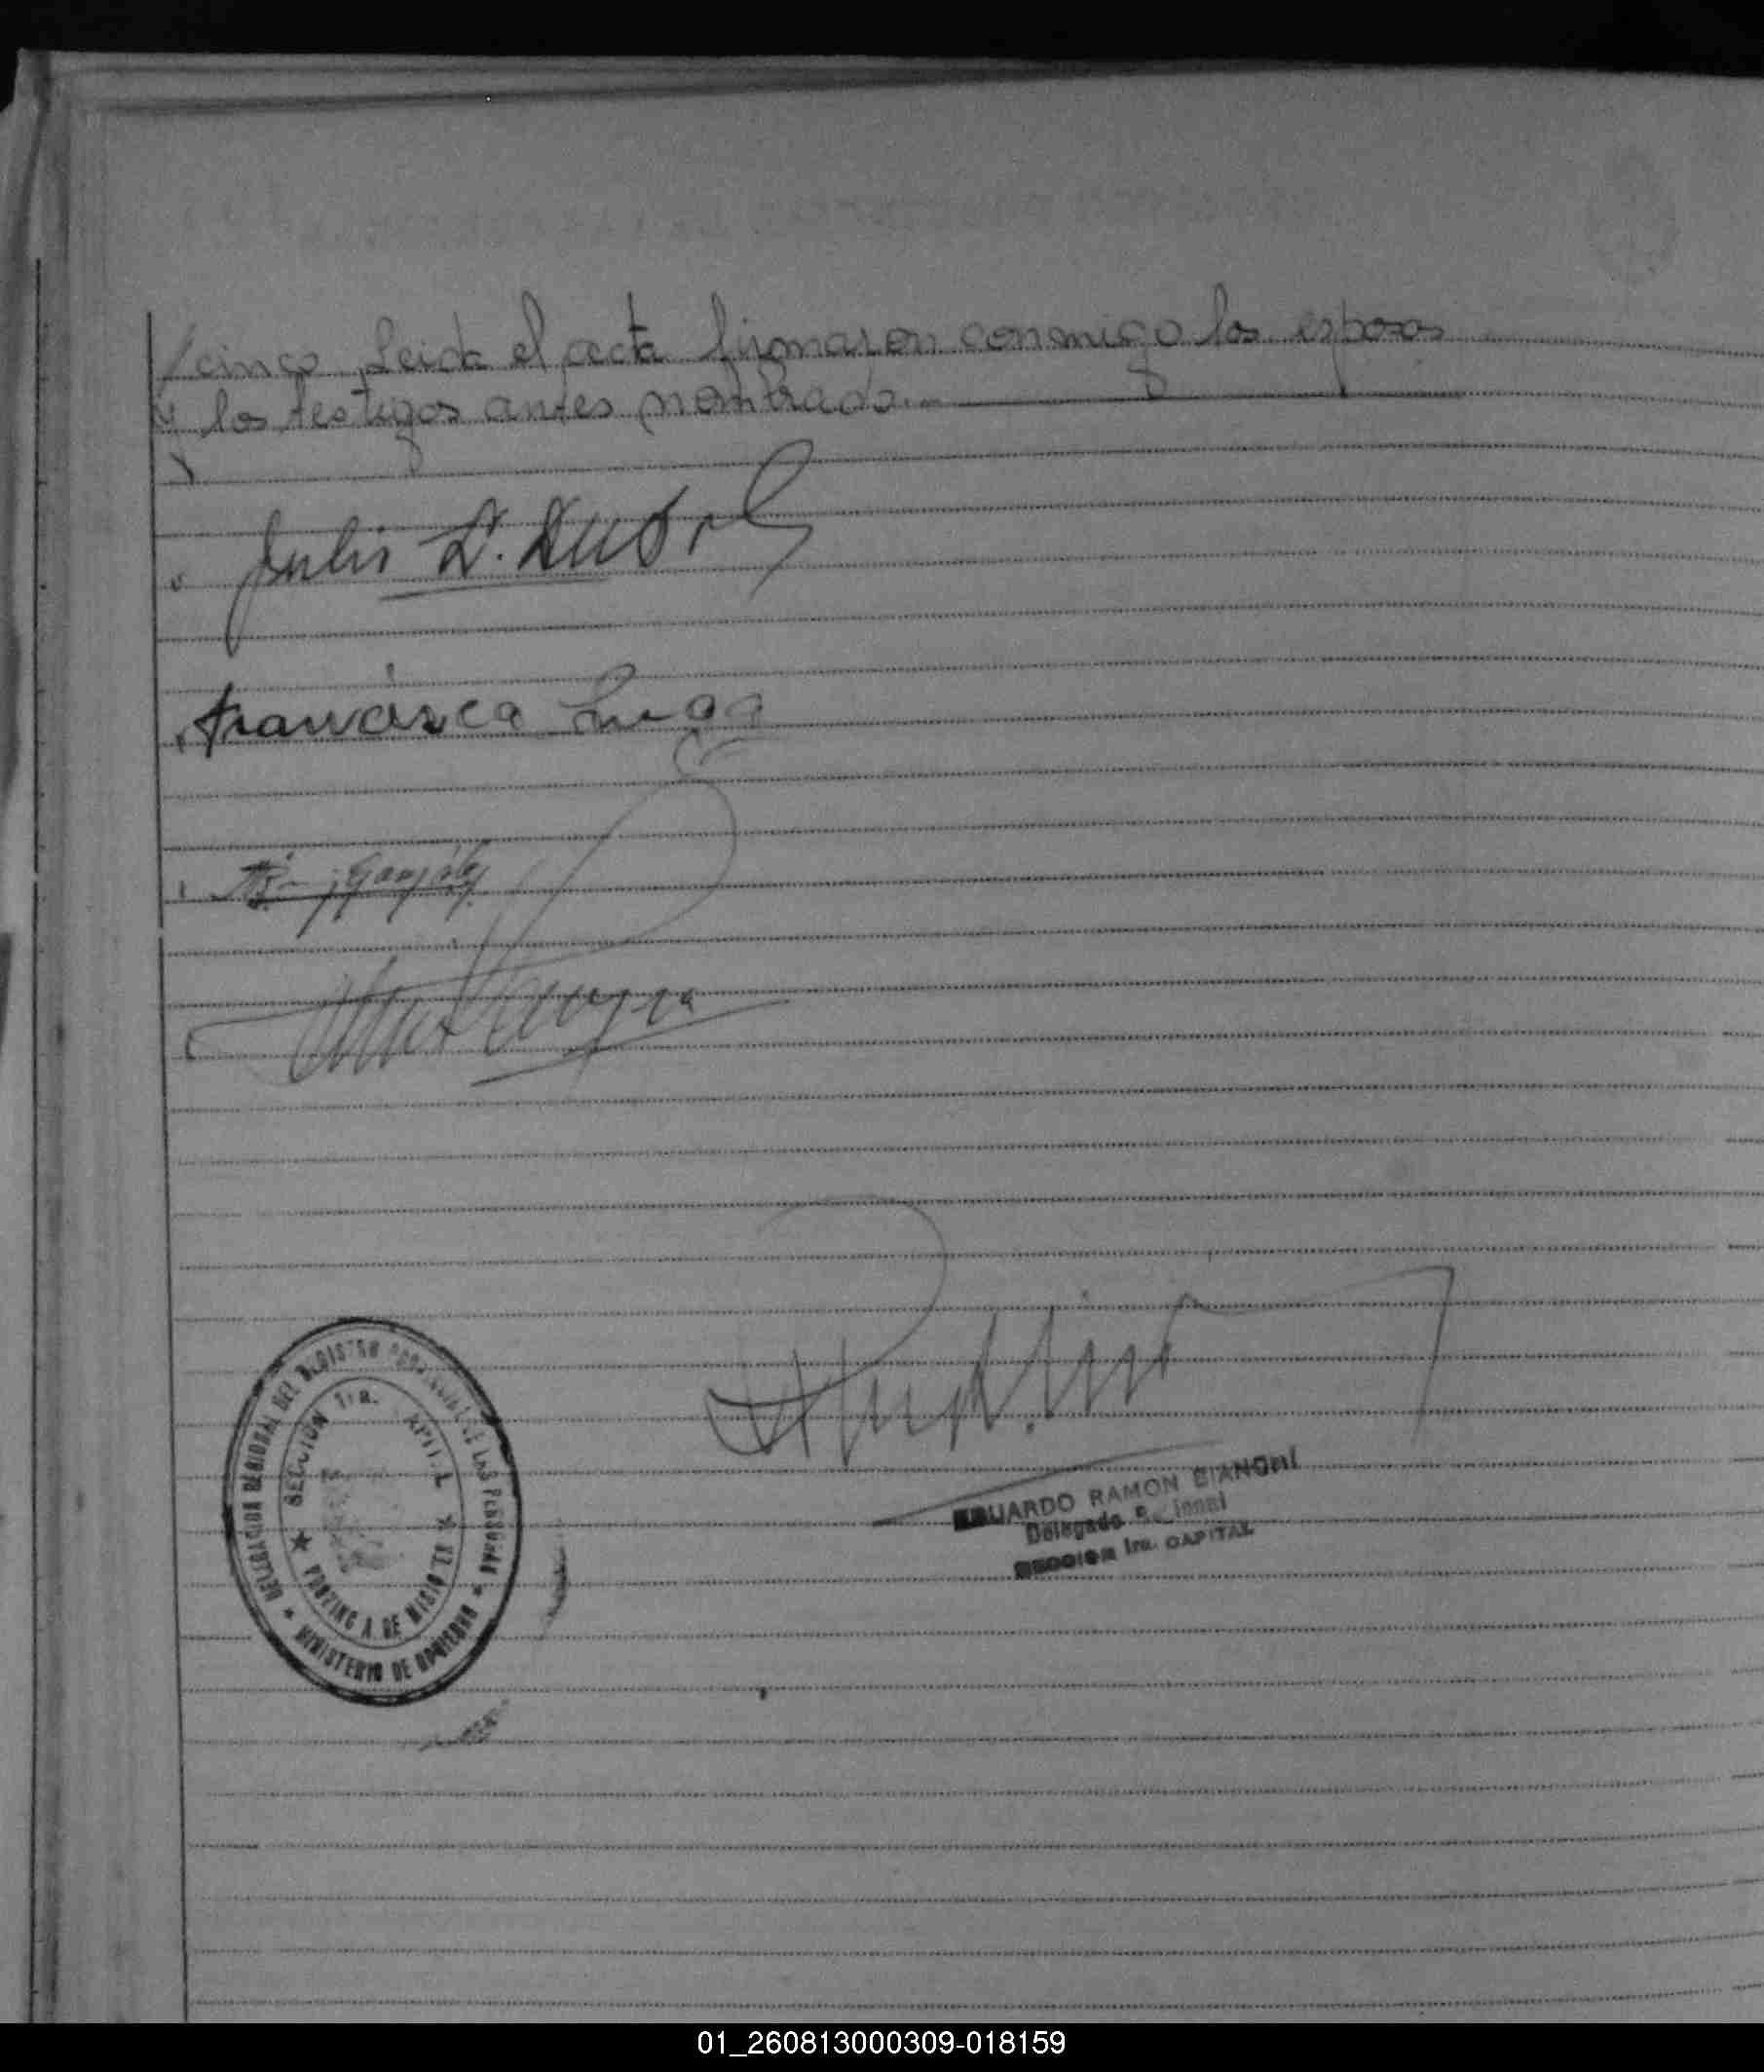 /cinco. Leida el acta firmaron conmigo los esposos
y los testigos antes nombrado.-
Julio
Francisca
DELEGACION REGIONAL DEL REGISTRO DE LAS PERSONAS
MINISTERIO DE GOBIERNO
SECCION 1ra.
PROVINCIA DE MISIONES
EDUARDO RAMON BIANCHI
Delegado
SECCION 1ra. CAPITAL
01_260813000309-018159